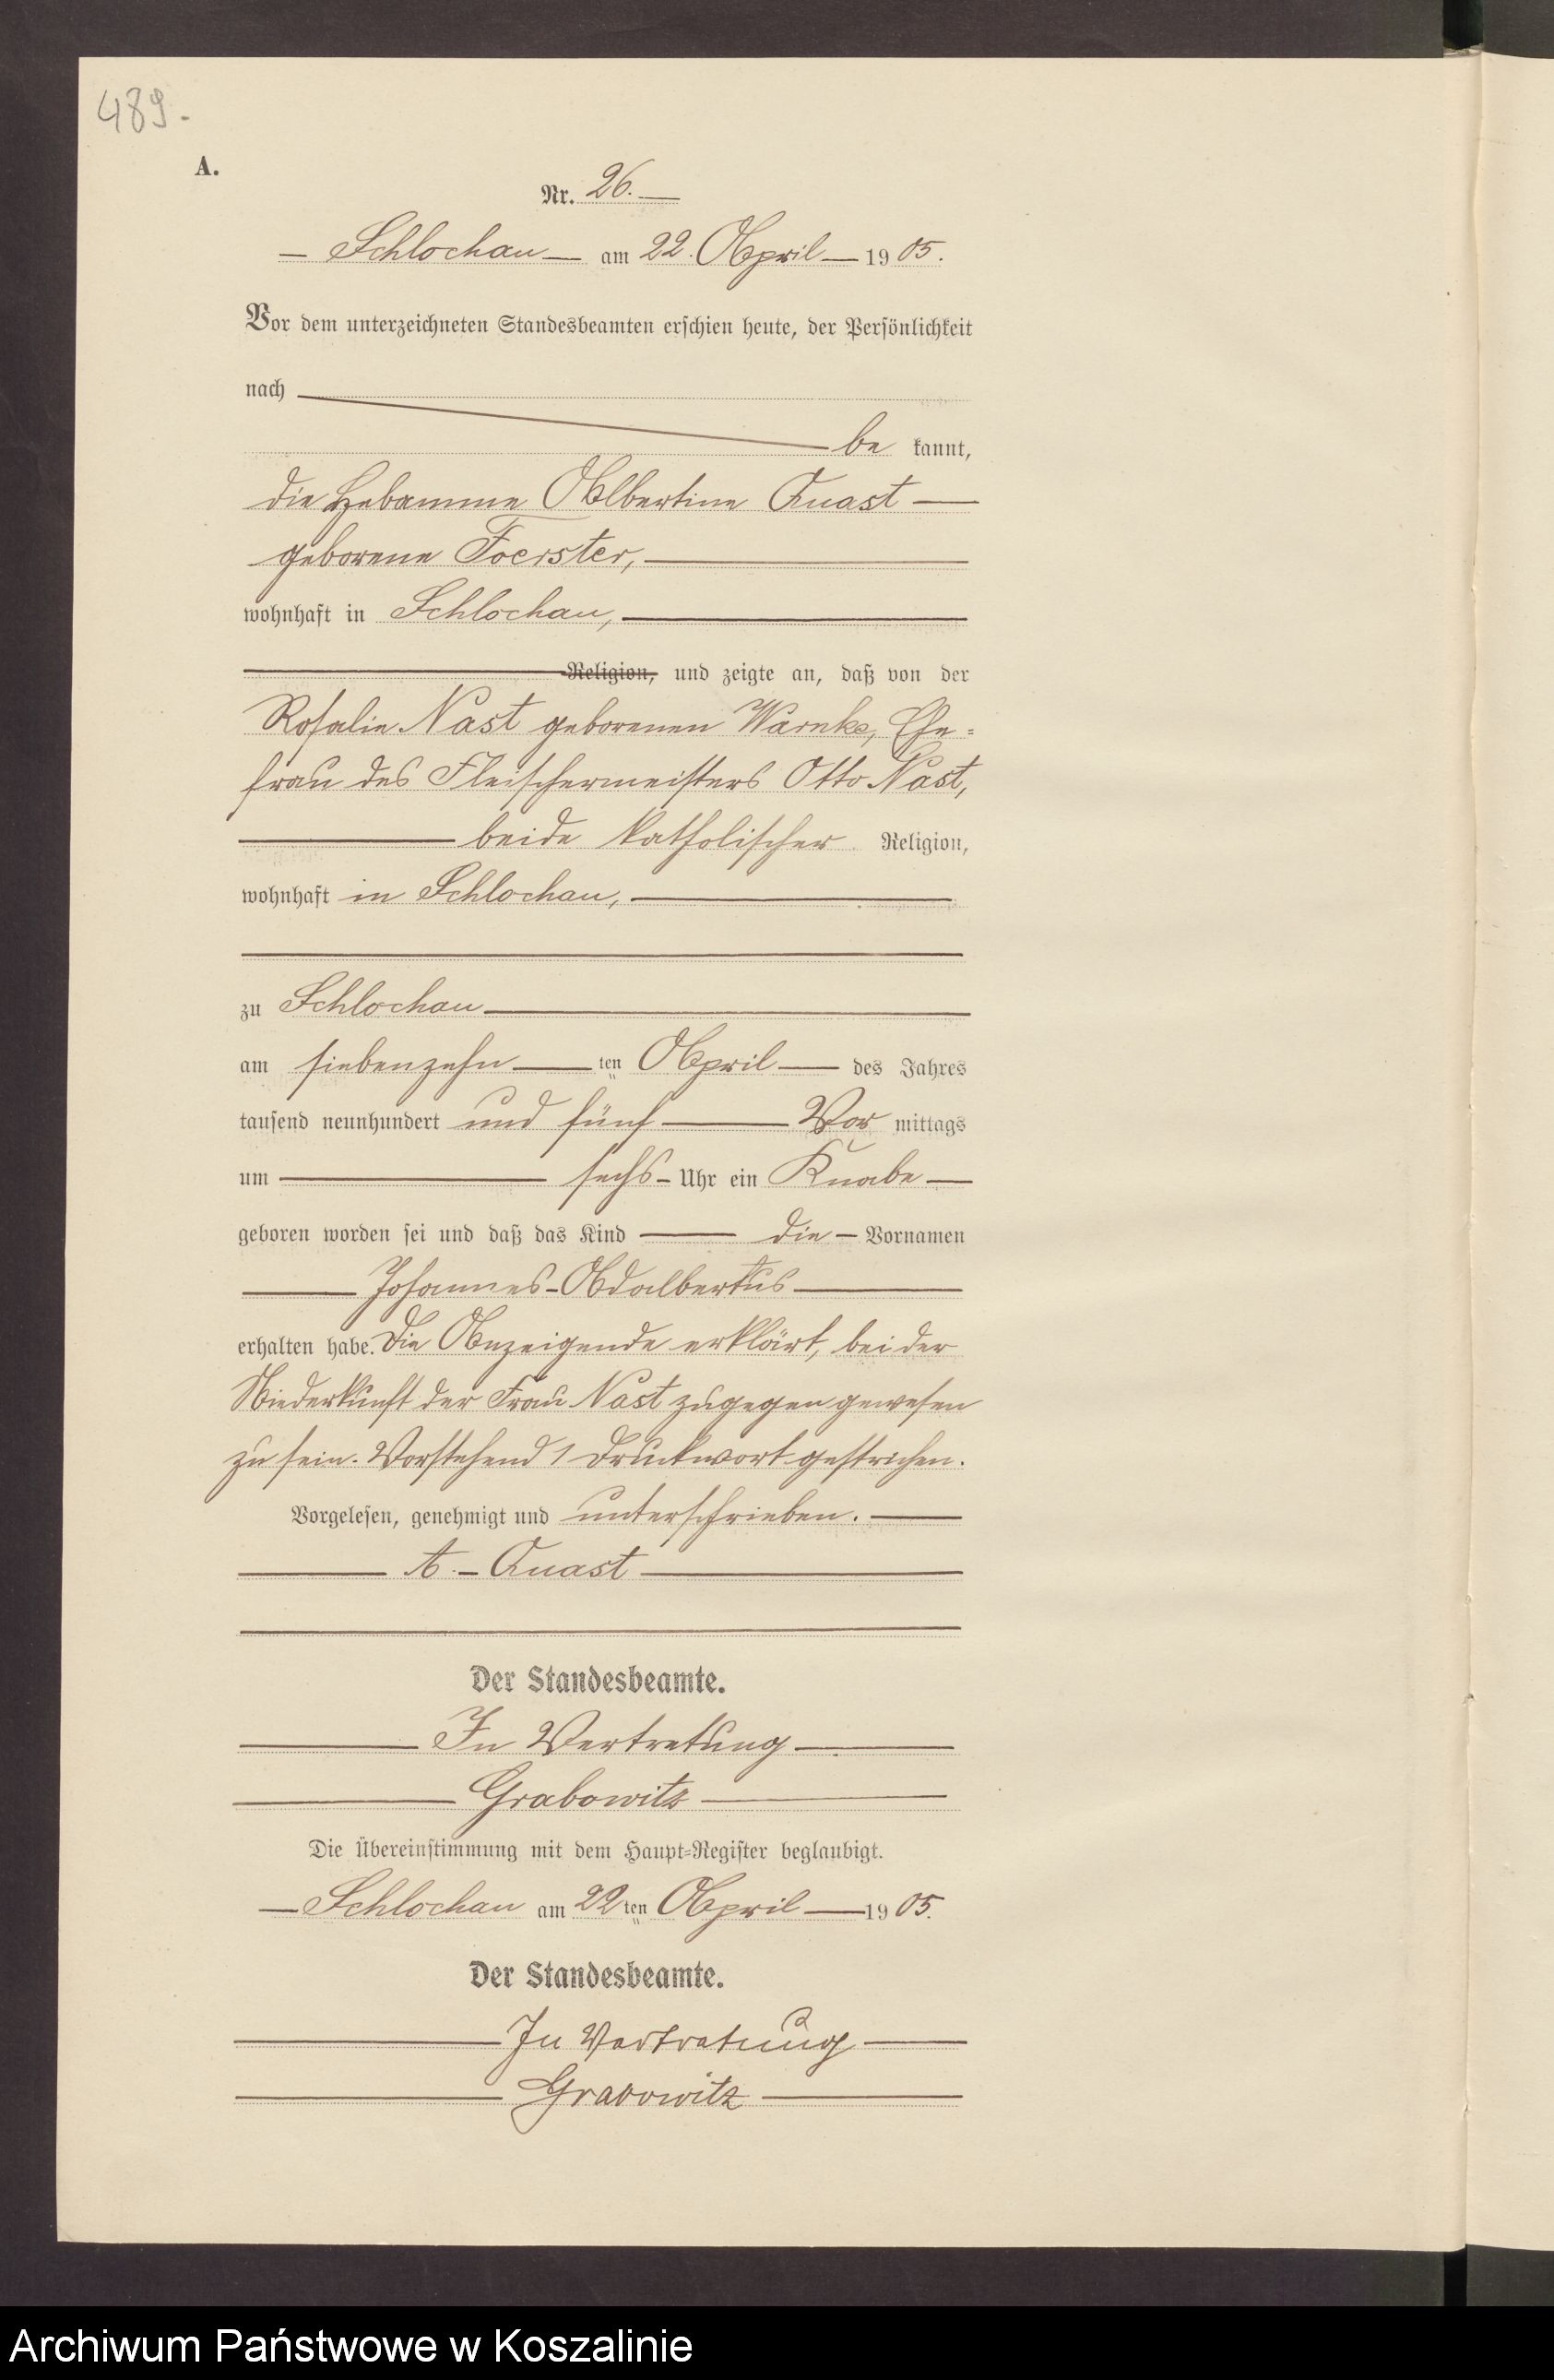 489.
A.
Nr. 26.
Schlochau am 22. April 1905.
Vor dem unterzeichneten Standesbeamten erschien heute, der Persönlichkeit
nach
be kannt,
die Hebamme Albertine Quast
geborene Foerster,
wohnhaft in Schlochau,
Religion, und zeigte an, daß von der
Rosalie Nast geborenen Warnke, Ehe-
frau des Fleischermeisters Otto Nast,
beide katholischer Religion,
wohnhaft in Schlochau,
zu Schlochau
am siebenzehn ten April des Jahres
tausend neunhundert und fünf Vor mittags
um sechs Uhr ein Knabe
geboren worden sei und daß das Kind die Vornamen
Johannes-Adalbertus
erhalten habe. Die Anzeigende erklärt, bei der
Niederkunft der Frau Nast zugegen gewesen
zu sein. Vorstehend 1 Druckwort gestrichen.
Vorgelesen, genehmigt und unterschrieben.
A. Quast
Der Standesbeamte.
In Vertretung
Grabowitz
Die Übereinstimmung mit dem Haupt-Register beglaubigt.
Schlochau am 22ten April 1905.
Der Standesbeamte.
In Vertretung
Grabowitz
Archiwum Państwowe w Koszalinie